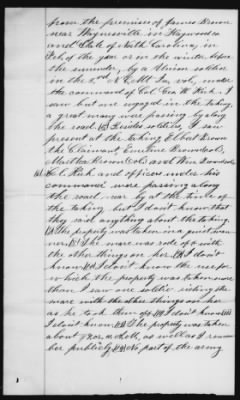 from the premises of James Brown
near Waynesville in Haywood co
and State of North Carolina, in
Feb of the year or in the winter before
the surrender, by a Union soldier
in the 2nd N.C. Mt. Inv. vols, under
the command of Col. Geo. W. Kirk. I
saw but one engaged in the taking,
a great many were passing by along
the road. Besides soldiers, I saw
present at the taking Elbert Brown
the Claimant, Emeline Brown (col),
Martha Brown (col) and Wm
Col. Kirk and officers under his
command were passing along
the road near by at the time of
the taking but I don't know that
they said anything about the taking.
The property was taken in a quiet man-
ner. The mare was rode off with
the other things on her. I don't
know. I don't know the use for
which the property was taken more
than I saw one soldier riding the
mare with the other things on her
as he took them off. I don't know
I don't know. The property was taken
about o'clock, as well as I remem-
ber publicly No, part of the army